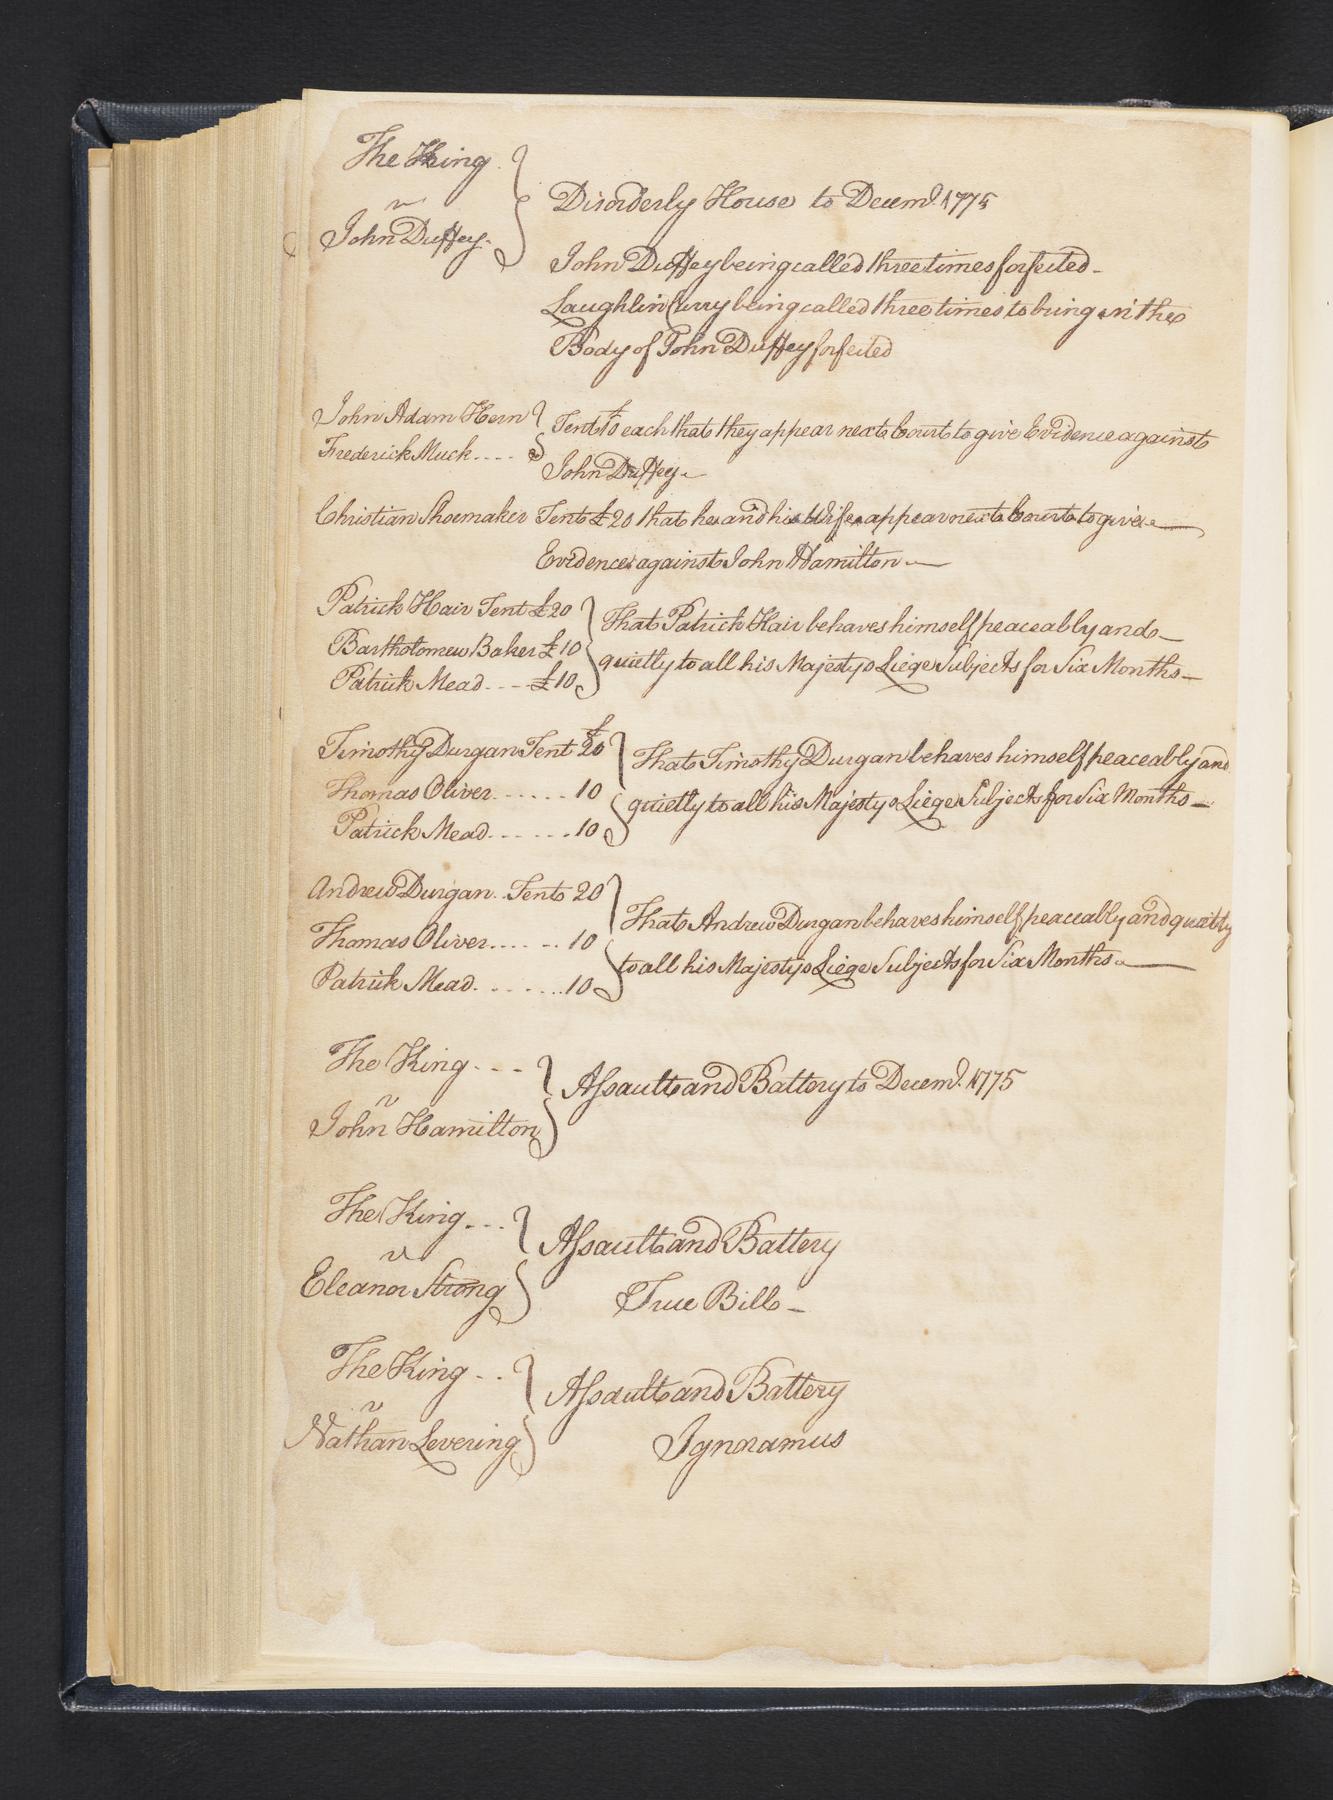 The King
v
John Duffey
Disorderly House to Decemr. 1775
John Duffey being called three times forfeited
Laughlin Curry being called three times to bring in the
Body of John Duffey forfeited
John Adam Hern
Frederick Muck
Tent £ each that they appear next Court to give Evidence against
John Duffey
Christian Shoemaker Tent £20 that he and his Wife appear next Court to give
Evidence against John Hamilton
Patrick Hair Tent £20
Bartholomew Baker £10
Patrick Mead £10
That Patrick Hair behaves himself peaceably and
quietly to all his Majestys Liege Subjects for Six Months
Timothy Durgan Tent £20
Thomas Oliver 10
Patrick Mead 10
That Timothy Durgan behaves himself peaceably and
quietly to all his Majestys Liege Subjects for Six Months
Andrew Durgan Tent 20
Thomas Oliver 10
Patrick Mead 10
That Andrew Durgan behaves himself peaceably and quietly
to all his Majestys Liege Subjects for Six Months
The King
v
John Hamilton
Assault and Battery to Decemr. 1775
The King
v
Eleanor Strong
Assault and Battery
True Bill
The King
v
Nathan Levering
Assault and Battery
Ignoramus